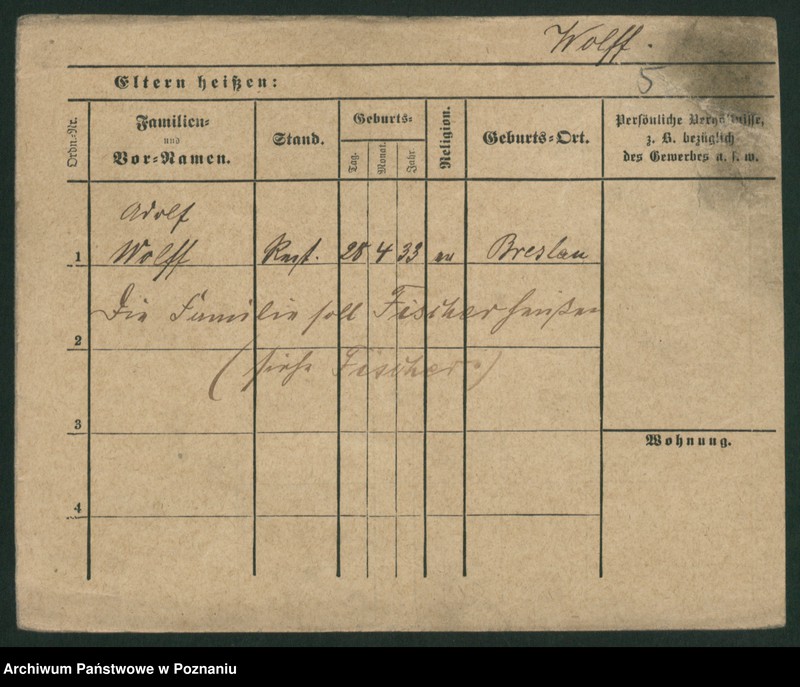 Wolff.
5
Eltern heißen:
Ordn.-Nr.
Familien-
und
Vor-Namen.
Stand.
Geburts-
Tag.
Monat.
Jahr.
Religion.
Geburts-Ort.
Persönliche Verhältnisse,
z. B. bezüglich
des Gewerbes u. s. w.
Adolf
1 Wolff 28 4 33 ev Breslau
Die Familie soll Fischer heißen
2
(siehe Fischer)
3
Wohnung.
4
Archiwum Państwowe w Poznaniu